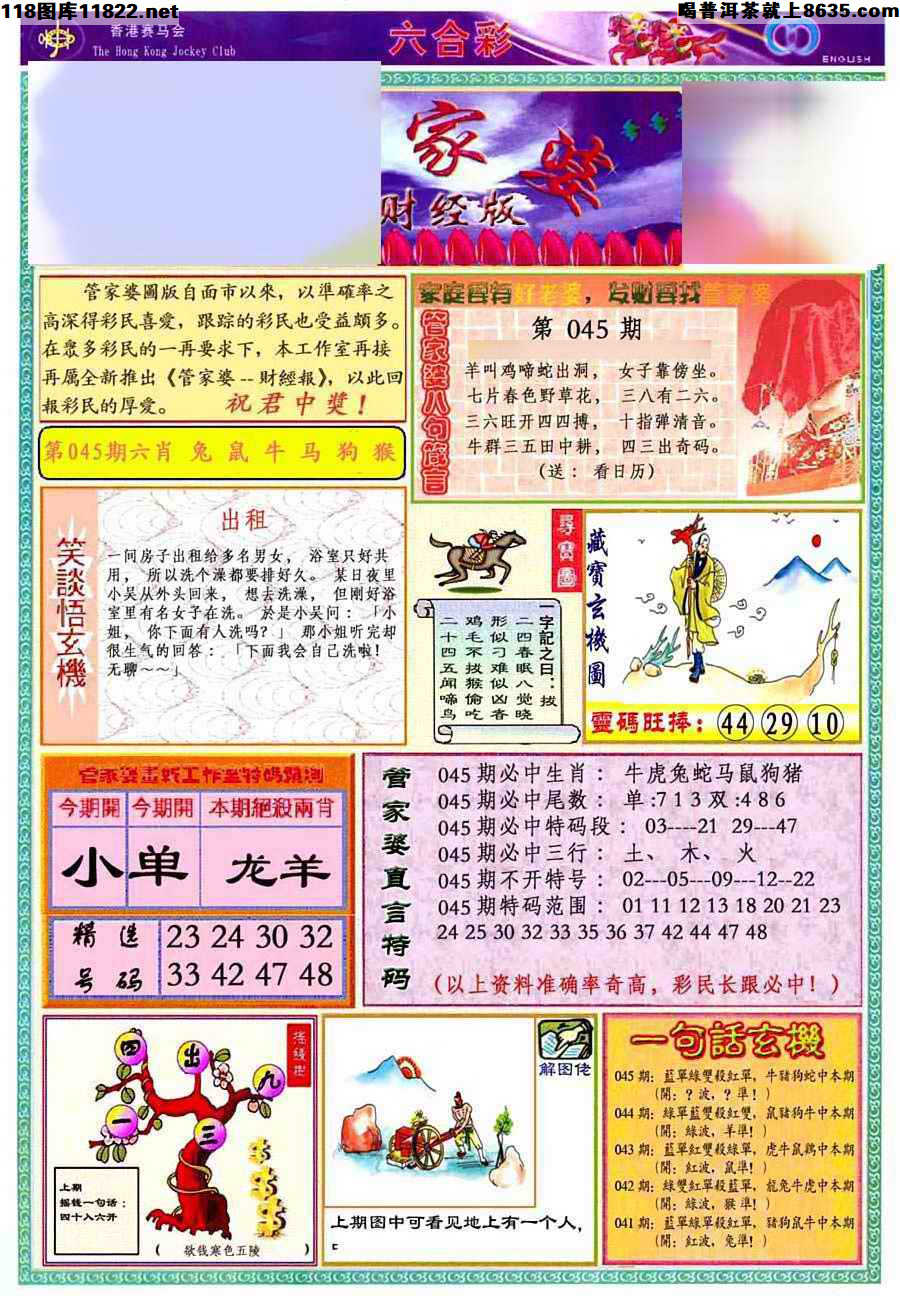 118图库11822.net
喝普洱茶就上8635.com
香港赛马会
The Hong Kong Jockey Club
六合彩
ENGLISH
家婆
财经版
管家婆圖版自面市以來，以準確率之
高深得彩民喜愛，跟踪的彩民也受益頗多。
在眾多彩民的一再要求下，本工作室再接
再厲全新推出《管家婆--財經報》，以此回
報彩民的厚愛。 祝君中獎！
第045期六肖 兔 鼠 牛 马 狗 猴
家庭要有好老婆，发财要找管家婆
管家婆八句箴言
第 045 期
羊叫鸡啼蛇出洞， 女子靠傍坐。
七片春色野草花， 三八有二六。
三六旺开四四搏， 十指弹清音。
牛群三五田中耕， 四三出奇码。
(送： 看日历)
笑談悟玄機
出租
一间房子出租给多名男女， 浴室只好共
用， 所以洗个澡都要排好久。 某日夜里
小吴从外头回来， 想去洗澡， 但刚好浴
室里有名女子在洗。 於是小吴问：「小
姐， 你下面有人洗吗？」 那小姐听完却
很生气的回答：「下面我会自己洗啦！
无聊～～」
一字記之曰：拔
二四春眠八觉晓
形似刁难似凶杳
鸡毛不拔猴偷吃
二十四五闻啼鸟
尋寶圖
藏寶玄機圖
靈碼旺捧： 44 29 10
今期開 今期開 本期絕殺兩肖
小 单 龙羊
精选号码
23 24 30 32
33 42 47 48
管家婆直言特码
045 期必中生肖： 牛虎兔蛇马鼠狗猪
045 期必中尾数： 单:7 1 3 双:4 8 6
045 期必中特码段： 03----21 29---47
045 期必中三行： 土、 木、 火
045 期不开特号： 02---05---09---12--22
045 期特码范围： 01 11 12 13 18 20 21 23
24 25 30 32 33 35 36 37 42 44 47 48
(以上资料准确率奇高，彩民长跟必中！)
摇钱树
四
出
九
一
三
上期
摇钱一句话：
四十入六开
( 欲钱寒色五陵 )
解图佬
上期图中可看见地上有一个人，
一句話玄機
045 期：藍單綠雙殺紅單，牛豬狗蛇中本期
(開：？波，？準！)
044 期：綠單藍雙殺紅雙，鼠豬狗牛中本期
(開：綠波，羊準！)
043 期：藍單紅雙殺綠單，虎牛鼠鷄中本期
(開：紅波，鼠準！)
042 期：綠雙紅單殺藍單，龍兔牛虎中本期
(開：綠波，猴準！)
041 期：藍單綠單殺紅單，豬狗鼠牛中本期
(開：紅波，兔準！)